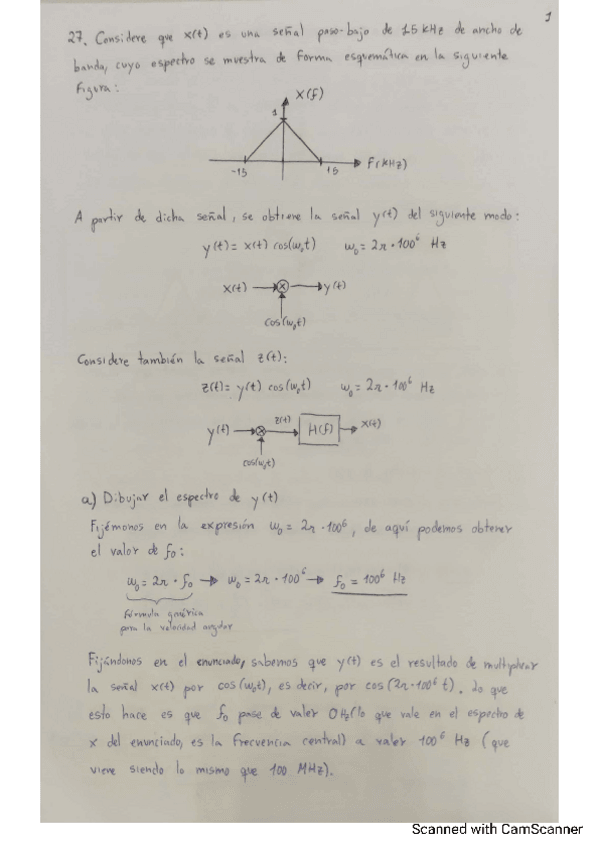 1
27. Considere que x(t) es una señal paso-bajo de 15 kHz de ancho de
banda, cuyo espectro se muestra de forma esquemática en la siguiente
figura:
X(f)
1
-15
15
F(kHz)
A partir de dicha señal, se obtiene la señal y(t) del siguiente modo:
y(t) = x(t) cos(ω₀t) ω₀ = 2π · 100⁶ Hz
x(t) y(t)
cos(ω₀t)
Considere también la señal z(t):
z(t) = y(t) cos(ω₀t) ω₀ = 2π · 100⁶ Hz
y(t) z(t) H(f) x(t)
cos(ω₀t)
a) Dibujar el espectro de y(t)
Fijémonos en la expresión ω₀ = 2π · 100⁶, de aquí podemos obtener
el valor de f₀:
ω₀ = 2π · f₀ → ω₀ = 2π · 100⁶ → f₀ = 100⁶ Hz
Fórmula genérica
para la velocidad angular
Fijándonos en el enunciado, sabemos que y(t) es el resultado de multiplicar
la señal x(t) por cos(ω₀t), es decir, por cos(2π·100⁶ t). Lo que
esto hace es que f₀ pase de valer 0Hz (lo que vale en el espectro de
x del enunciado, es la frecuencia central) a valer 100⁶ Hz (que
viene siendo lo mismo que 100 MHz).
Scanned with CamScanner